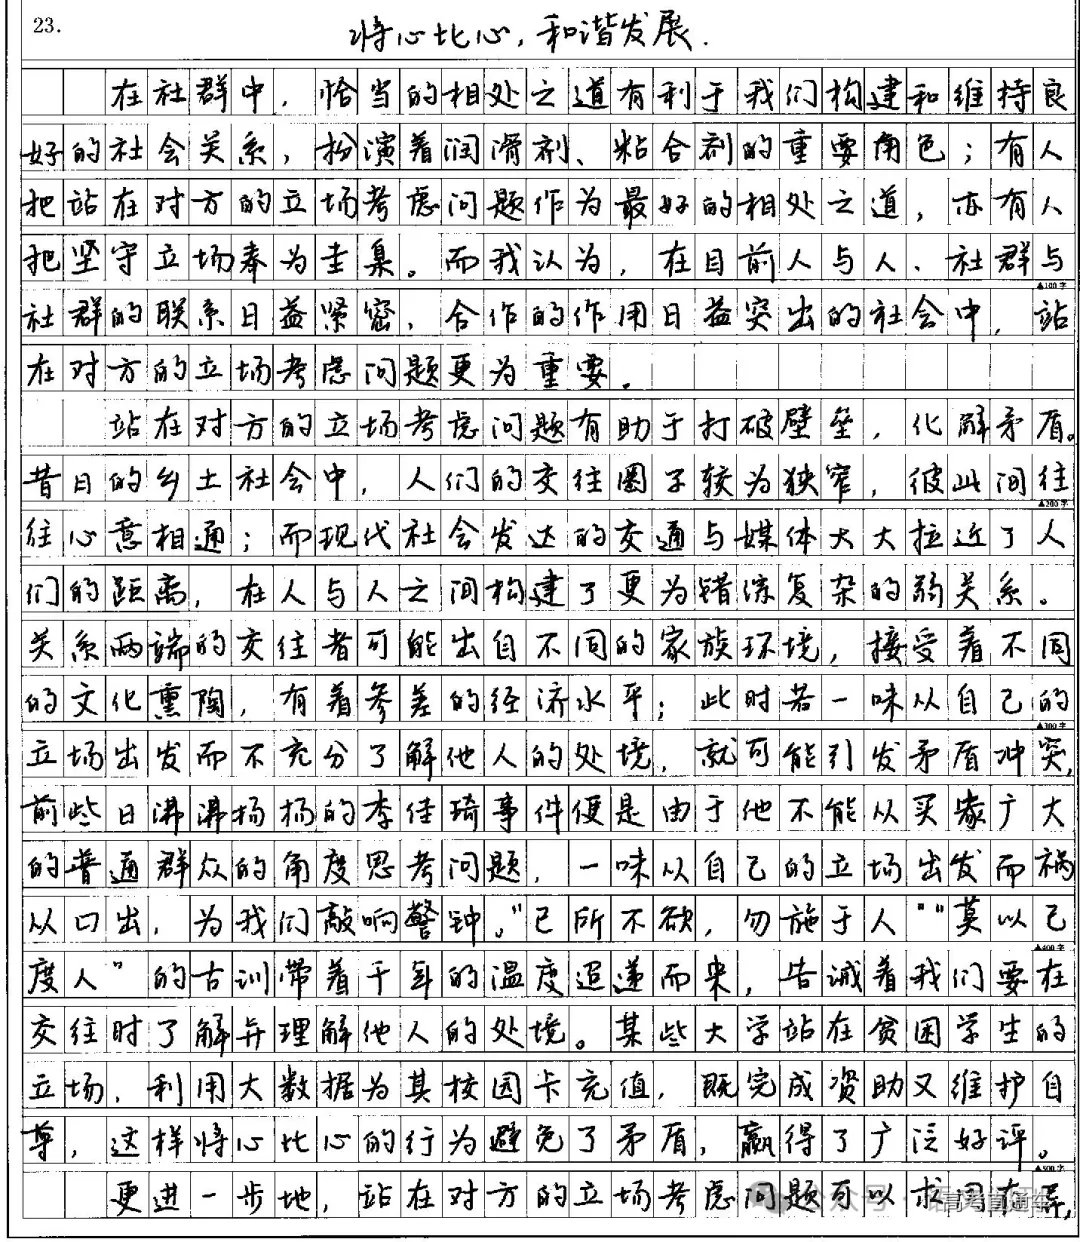 23.
将心比心，和谐发展.
在社群中，恰当的相处之道有利于我们构建和维持良
好的社会关系，扮演着润滑剂、粘合剂的重要角色；有人
把站在对方的立场考虑问题作为最好的相处之道，亦有人
把坚守立场奉为圭臬。而我认为，在目前人与人、社群与
▲100字
社群的联系日益紧密，合作的作用日益突出的社会中，站
在对方的立场考虑问题更为重要。
站在对方的立场考虑问题有助于打破壁垒，化解矛盾。
昔日的乡土社会中，人们的交往圈子较为狭窄，彼此间往
▲200字
往心意相通；而现代社会发达的交通与媒体大大拉近了人
们的距离，在人与人之间构建了更为错综复杂的弱关系。
关系两端的交往者可能出自不同的家族环境，接受着不同
的文化熏陶，有着参差的经济水平；此时若一味从自己的
▲300字
立场出发而不充分了解他人的处境，就可能引发矛盾冲突，
前些日沸沸扬扬的李佳琦事件便是由于他不能从买家广大
的普通群众的角度思考问题，一味从自己的立场出发而祸
从口出，为我们敲响警钟。"己所不欲，勿施于人""莫以己
▲400字
度人"的古训带着千年的温度迢递而来，告诫着我们要在
交往时了解并理解他人的处境。某些大学站在贫困学生的
立场，利用大数据为其校园卡充值，既完成资助又维护自
尊，这样将心比心的行为避免了矛盾，赢得了广泛好评。
▲500字
更进一步地，站在对方的立场考虑问题可以求同存异，
公众号
高考直通车